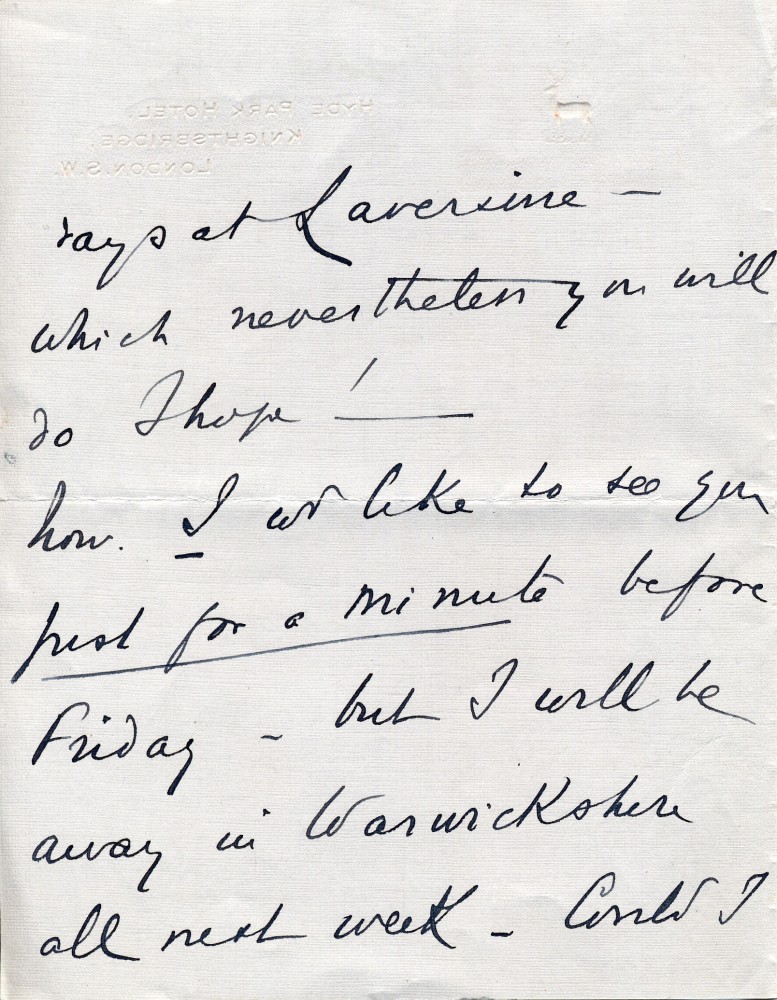 HYDE PARK HOTEL.
KNIGHTSBRIDGE,
LONDON. S.W.
days at Laversine –
which nevertheless you will
do I hope! —
how. I wd like to see you
just for a minute before
Friday - but I will be
away in Warwickshire
all next week - Could I